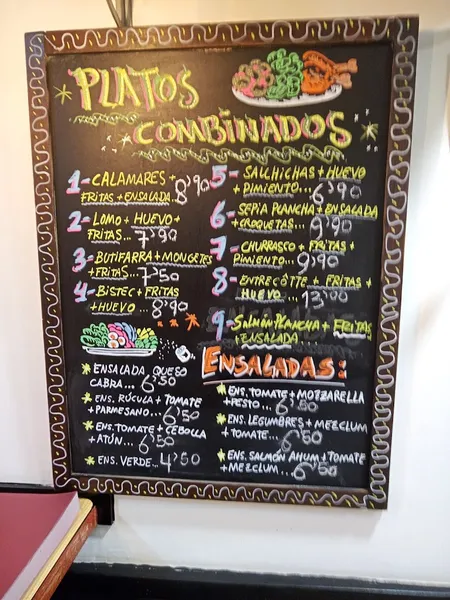 PLATOS
COMBINADOS
1-CALAMARES+
FRITAS+ENSALADA..8'90
2-LOMO+HUEVO+
FRITAS...7'90
3-BUTIFARRA+MONGETES
+FRITAS...7'50
4-BISTEC+FRITAS
+HUEVO...8'90
5-SALCHICHAS+HUEVO
+PIMIENTO...6'90
6-SEPIA PLANCHA+ENSALADA
+CROQUETAS...9'90
7-CHURRASCO+FRITAS+
PIMIENTO...9'90
8-ENTRECÔTTE+FRITAS+
HUEVO...13'00
9-SALMÓN PLANCHA+FRITAS
+ENSALADA...
ENSALADAS:
ENSALADA QUESO
CABRA...6'50
ENS. RÚCULA+TOMATE
+PARMESANO...6'50
ENS.TOMATE+CEBOLLA
+ATÚN...6'50
ENS. VERDE...4'50
ENS.TOMATE+MOZZARELLA
+PESTO...6'50
ENS.LEGUMBRES+MEZCLUM
+TOMATE...6'50
ENS.SALMÓN AHUM+TOMATE
+MEZCLUM...6'50